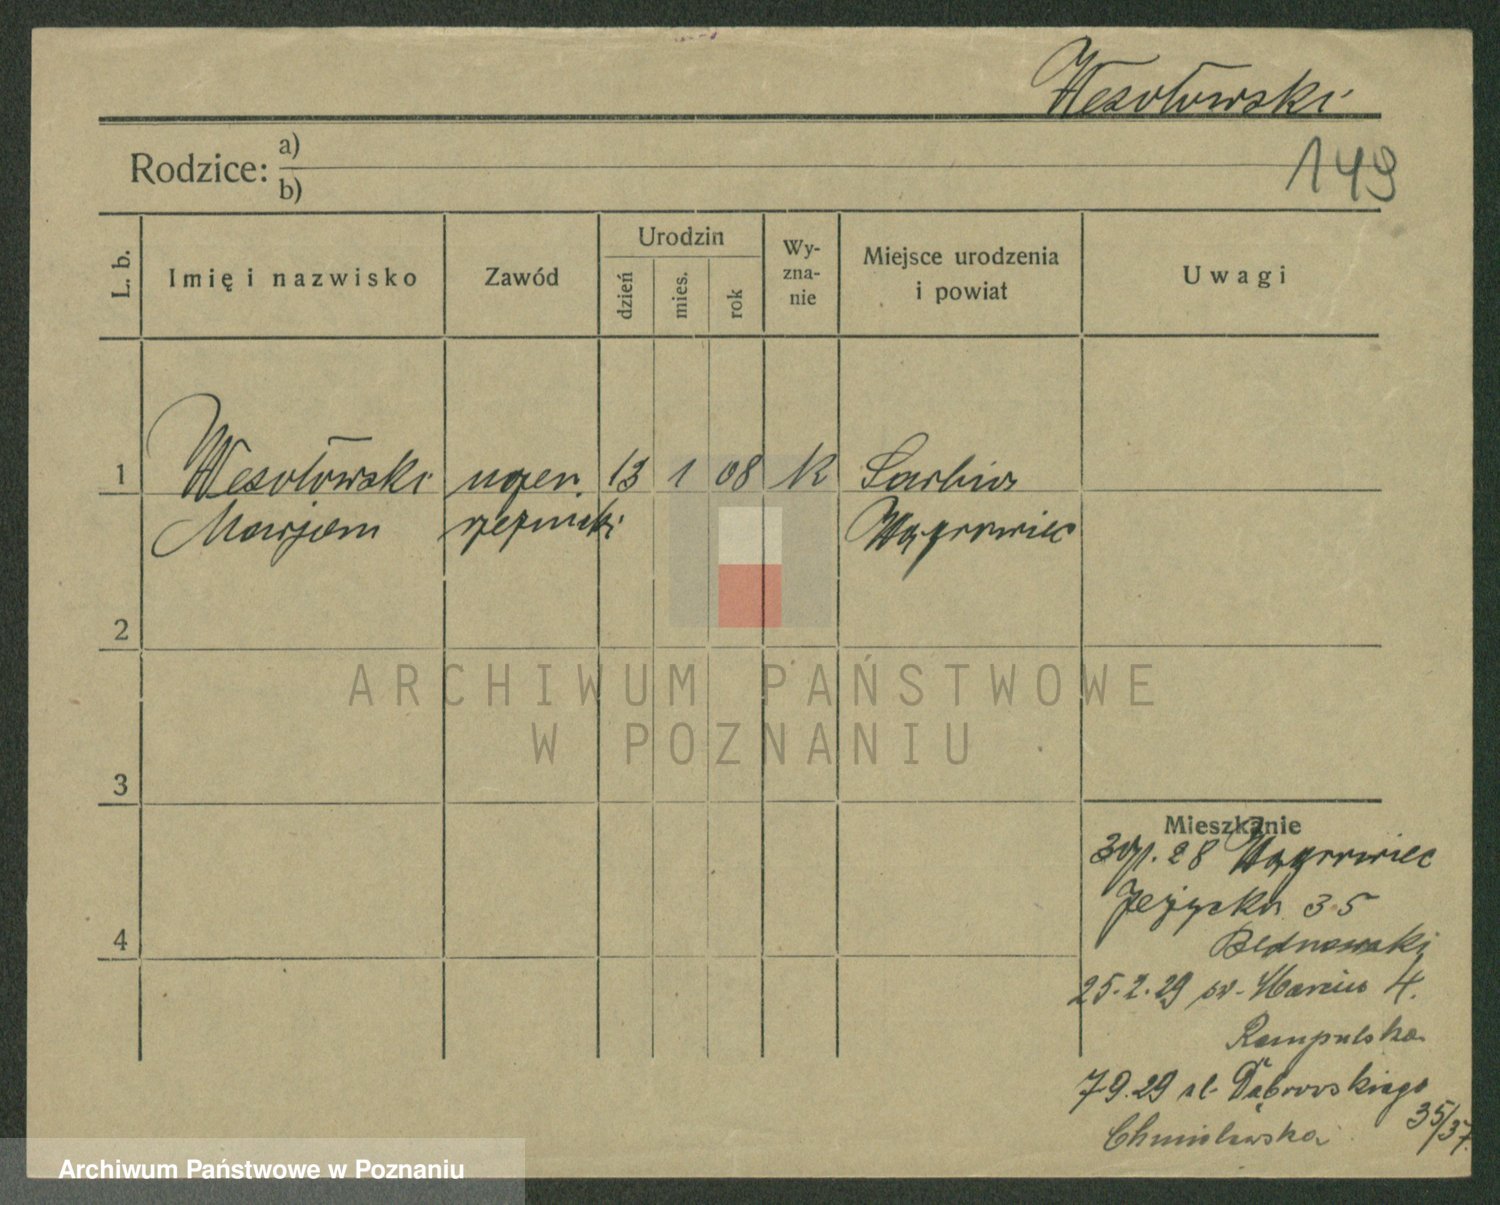 Wesołowski
149
Rodzice: a)
b)
L. b.
Imię i nazwisko
Zawód
Urodzin
dzień
mies.
rok
Wy-
zna-
nie
Miejsce urodzenia
i powiat
Uwagi
1 Wesołowski uczeń 13 1 08 k Sarbia
Marjan rzeźnicki Wągrowiec
2
ARCHIWUM PAŃSTWOWE
W POZNANIU
3
4
Mieszkanie
28 Wągrowiec
Jeżycka 35
Bednarski
25.2.29 św. Marcin 4.
Rampulska
7.9.29 ul. Dąbrowskiego
35/37
Chmielewska
Archiwum Państwowe w Poznaniu